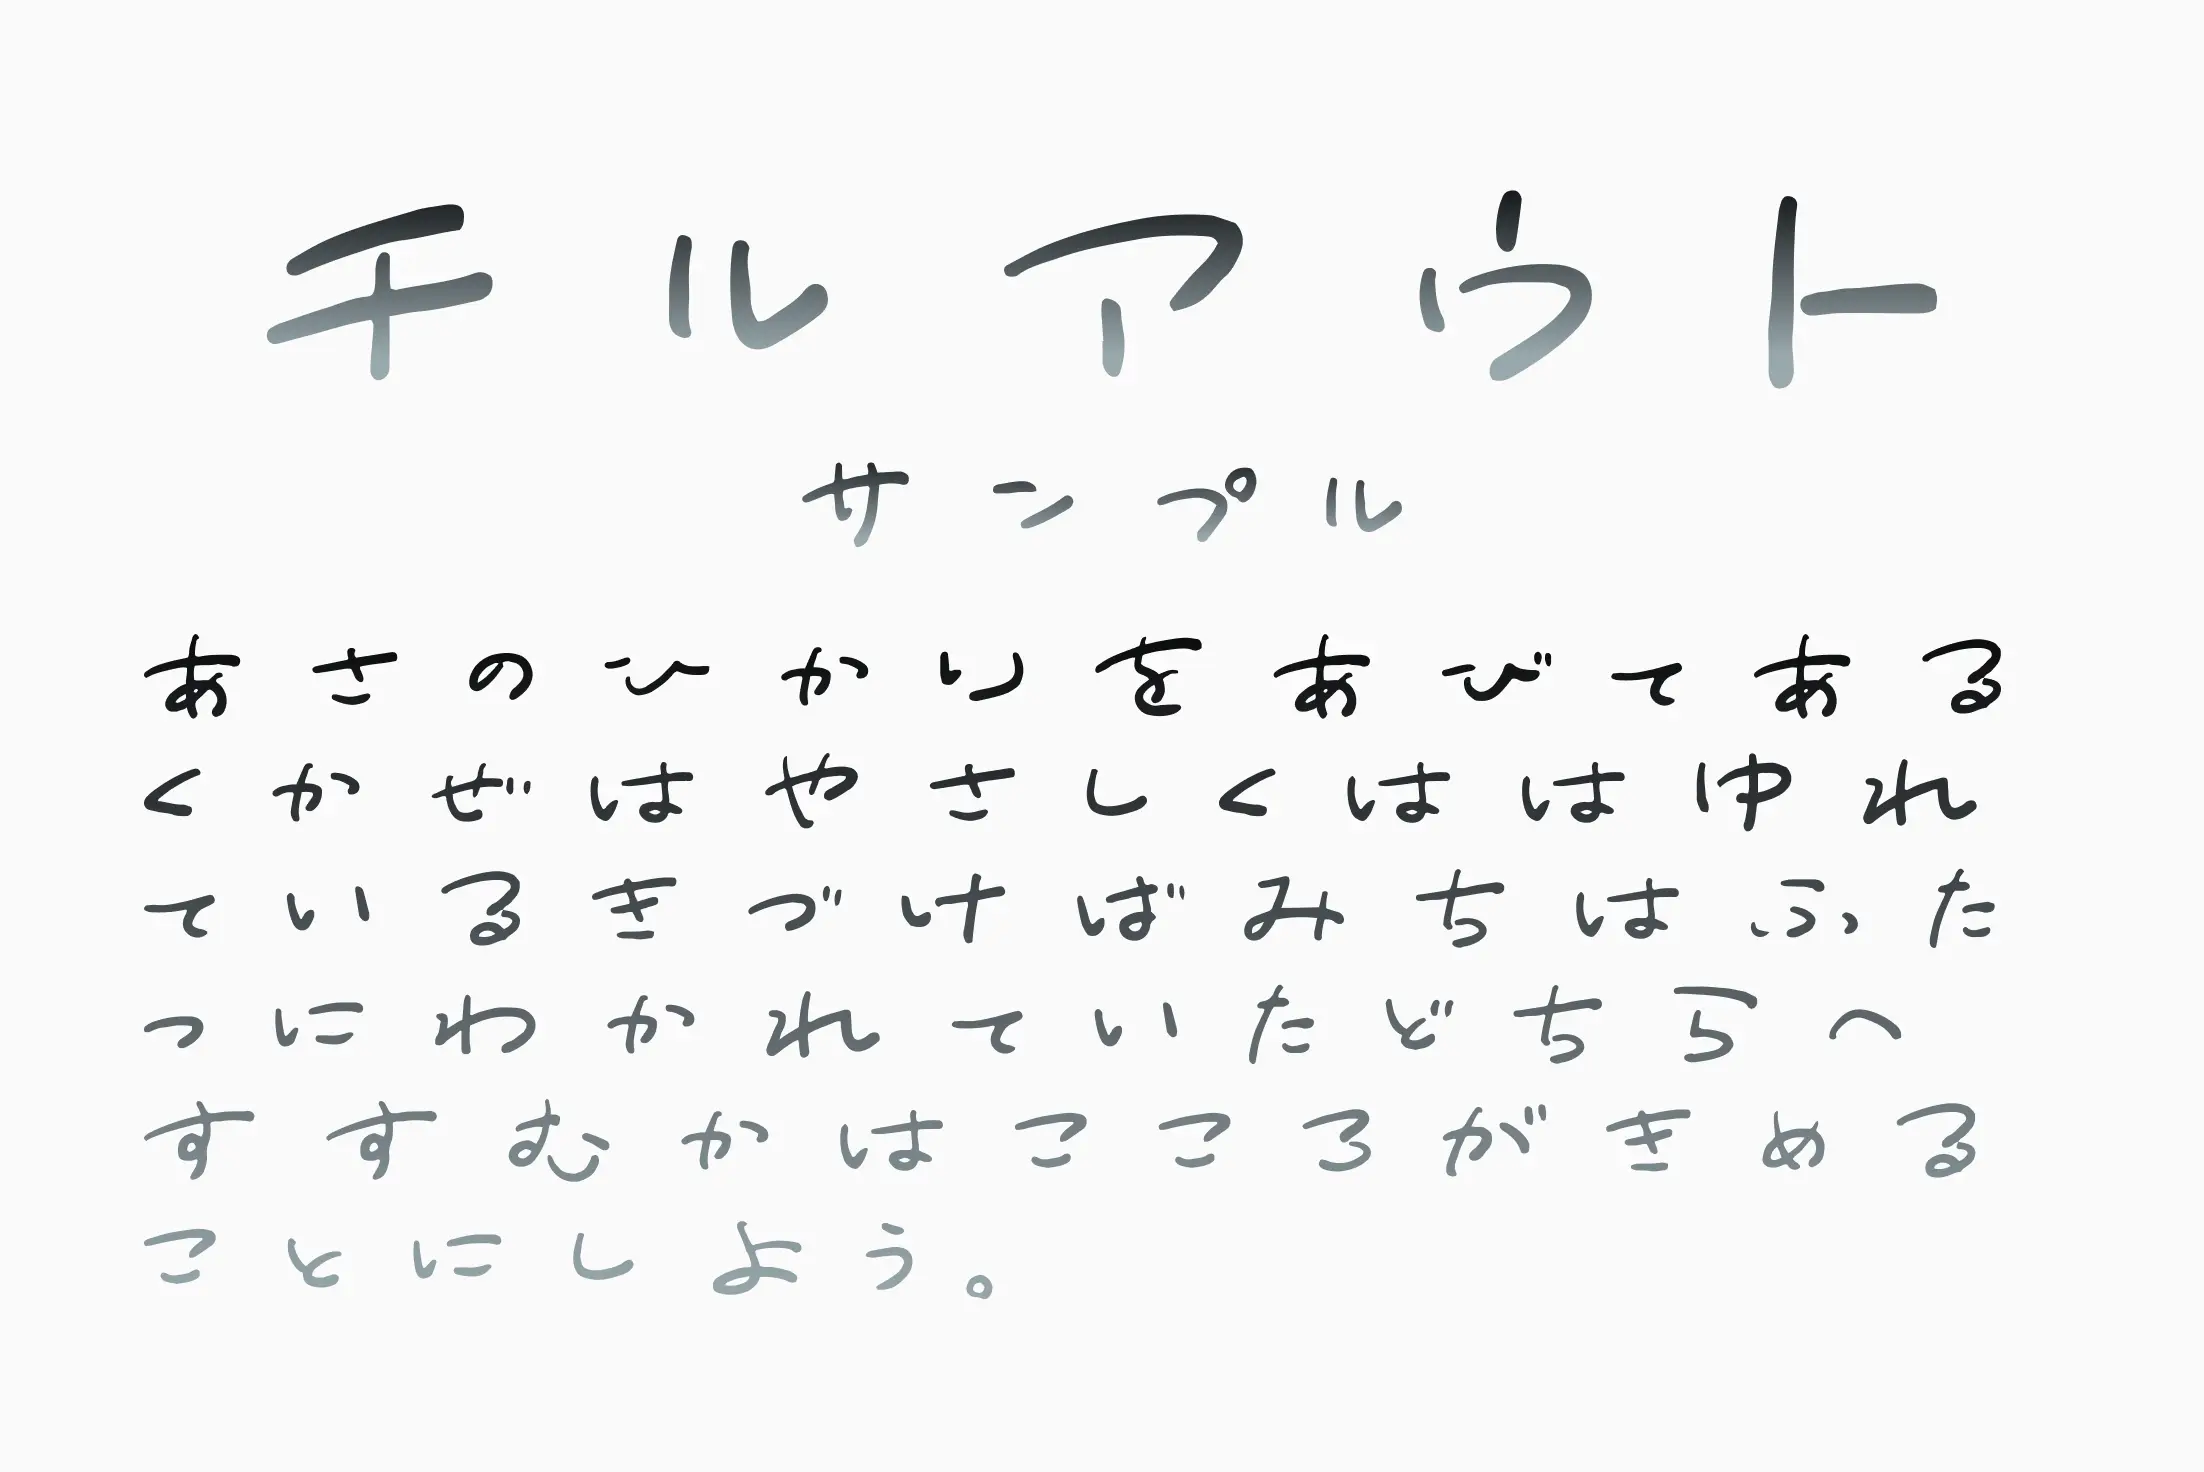 チルアウト
サンプル
あさのひかりをあびてある
くかぜはやさしくははゆれ
ているきづけばみちはふた
つにわかれていたどちらへ
すすむかはこころがきめる
ことにしよう。